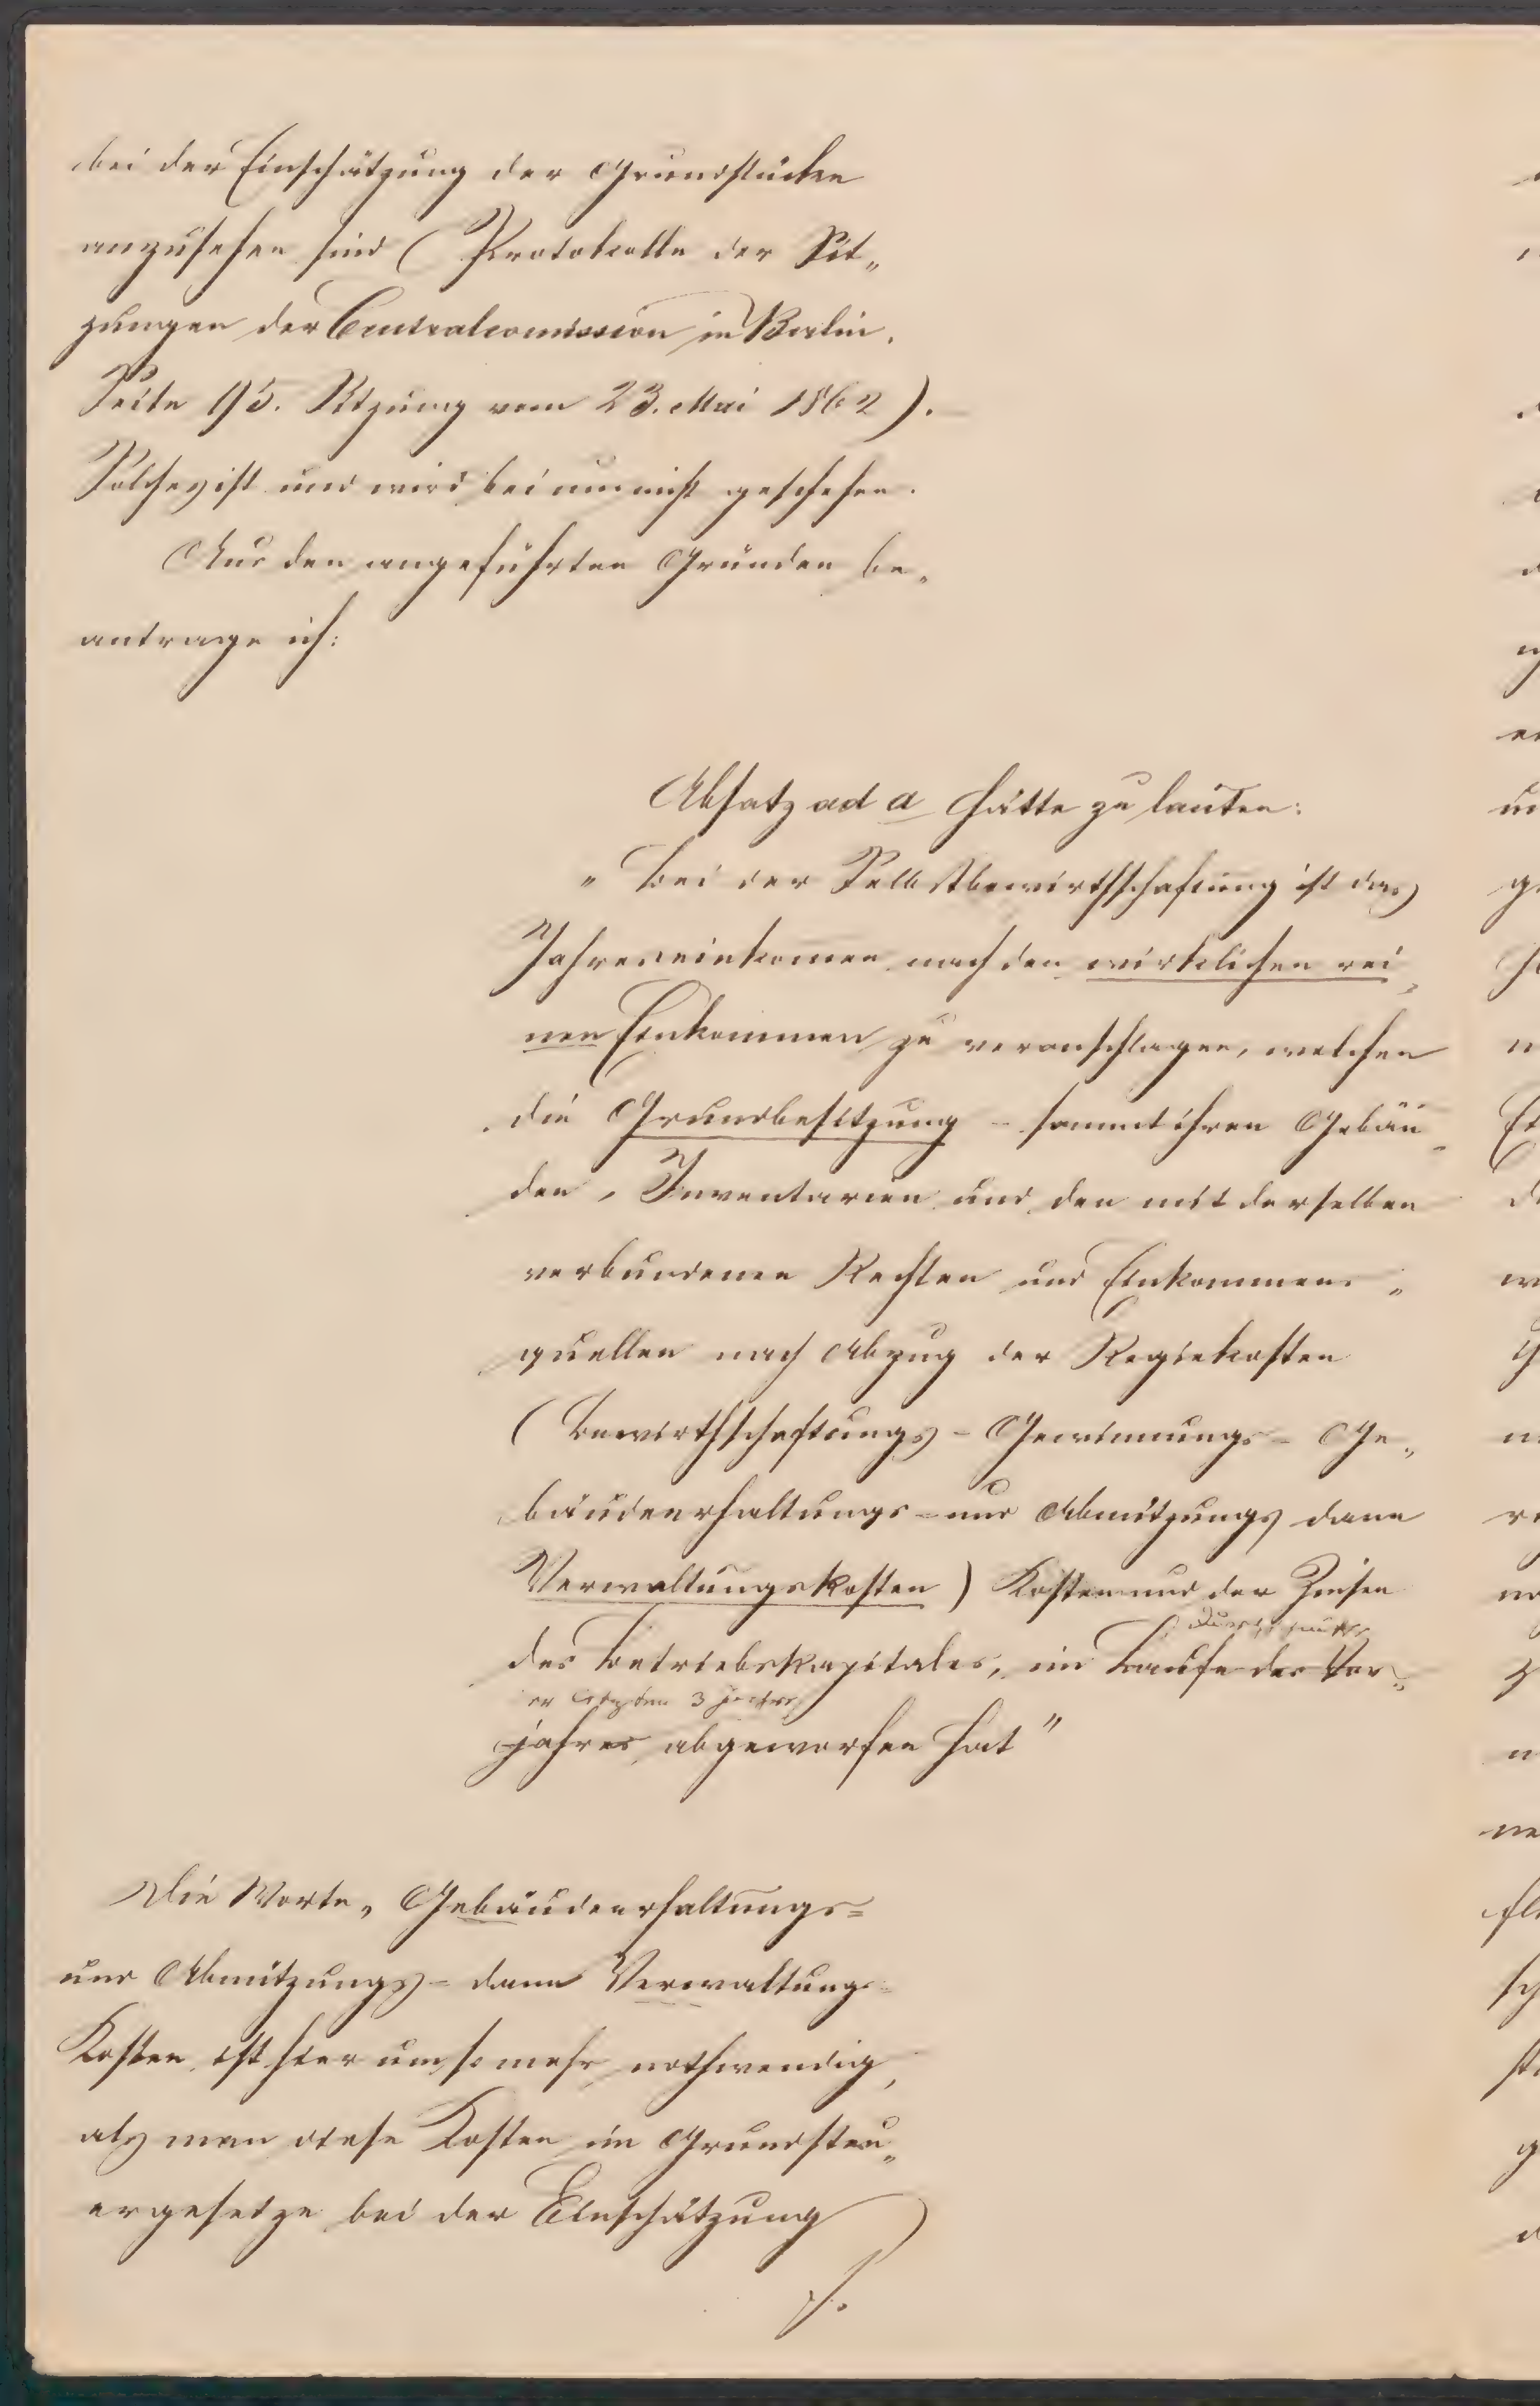 bei der Einschätzung der Grundstücke
anzusehen sind (Protokolle der Sit„
zungen der Centralcomission in Berlin.
Seite 95. Sitzung vom 23. Mai 1862).
Solches ist und wird bei uns nicht geschehen.
Aus den angeführten Gründen be„
antrage ich:
Absatz ad a hätte zu lauten:
„Bei der Selbstbewirthschaftung ist das
Jahreseinkomen nach den wirklichen rei„
nen Einkommen zu veranschlagen, welches
die Grundbesitzung – sammt ihren Gebäu„
den, Inventarien und den mit derselben
verbundenen Rechten und Einkommens„
quellen nach Abzug der Regiekosten
(Bewirthschaftungs- Gewinnungs- Ge„
bäudeerhaltungs- und Abnützungs dann
Verwaltungskosten) Kosten und der Zinsen
des Betriebskapitales, im Laufe des Vor„
er letzten 3 Jahre
jahres abgeworfen hat"
Die Worte „Gebäudeerhaltungs=
und Abnützungs= dann Verwaltungs=
Kosten ist hier um so mehr nothwendig,
als man diese Kosten im Grundsteu„
ergesetze bei der Einschätzung